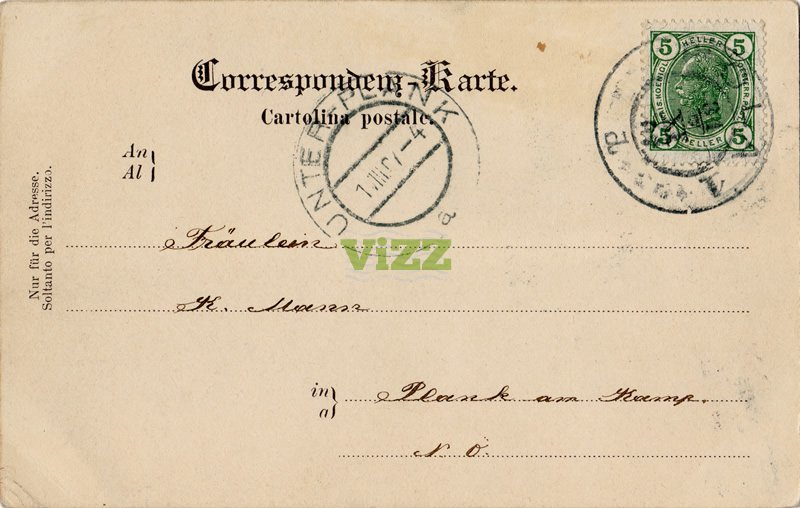 Correspondenz-Karte.
Cartolina postale.
An
Al
Nur für die Adresse.
Soltanto per l'indirizzo.
UNTER-PLANK
1.III.07-4
a
5 HELLER 5
5 HELLER 5
ViZZ
Fräulein
K. Mann
in
a
Plank am Kamp.
N. Ö.